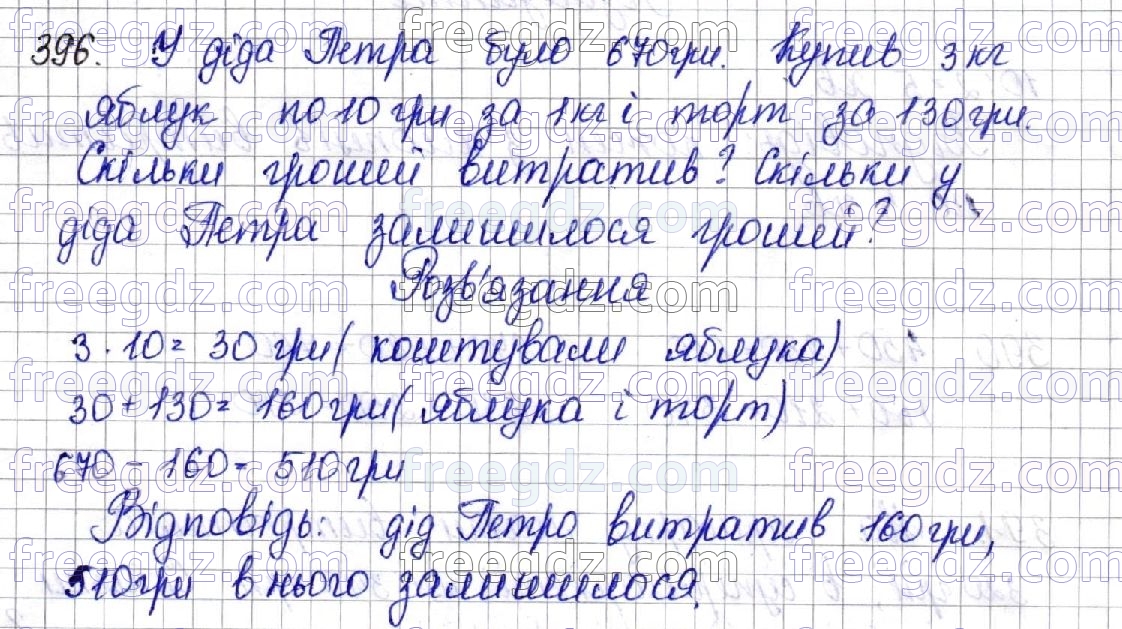 396. У діда Петра було 670грн. Купив 3 кг
яблук по 10 грн за 1кг і торт за 130грн.
Скільки грошей витратив? Скільки у
діда Петра залишилося грошей?
Розв'язання
3 · 10 = 30 грн (коштували яблука)
30 + 130 = 160грн (яблука і торт)
670 - 160 = 510грн
Відповідь: дід Петро витратив 160грн,
510грн в нього залишилося.
freegdz.com